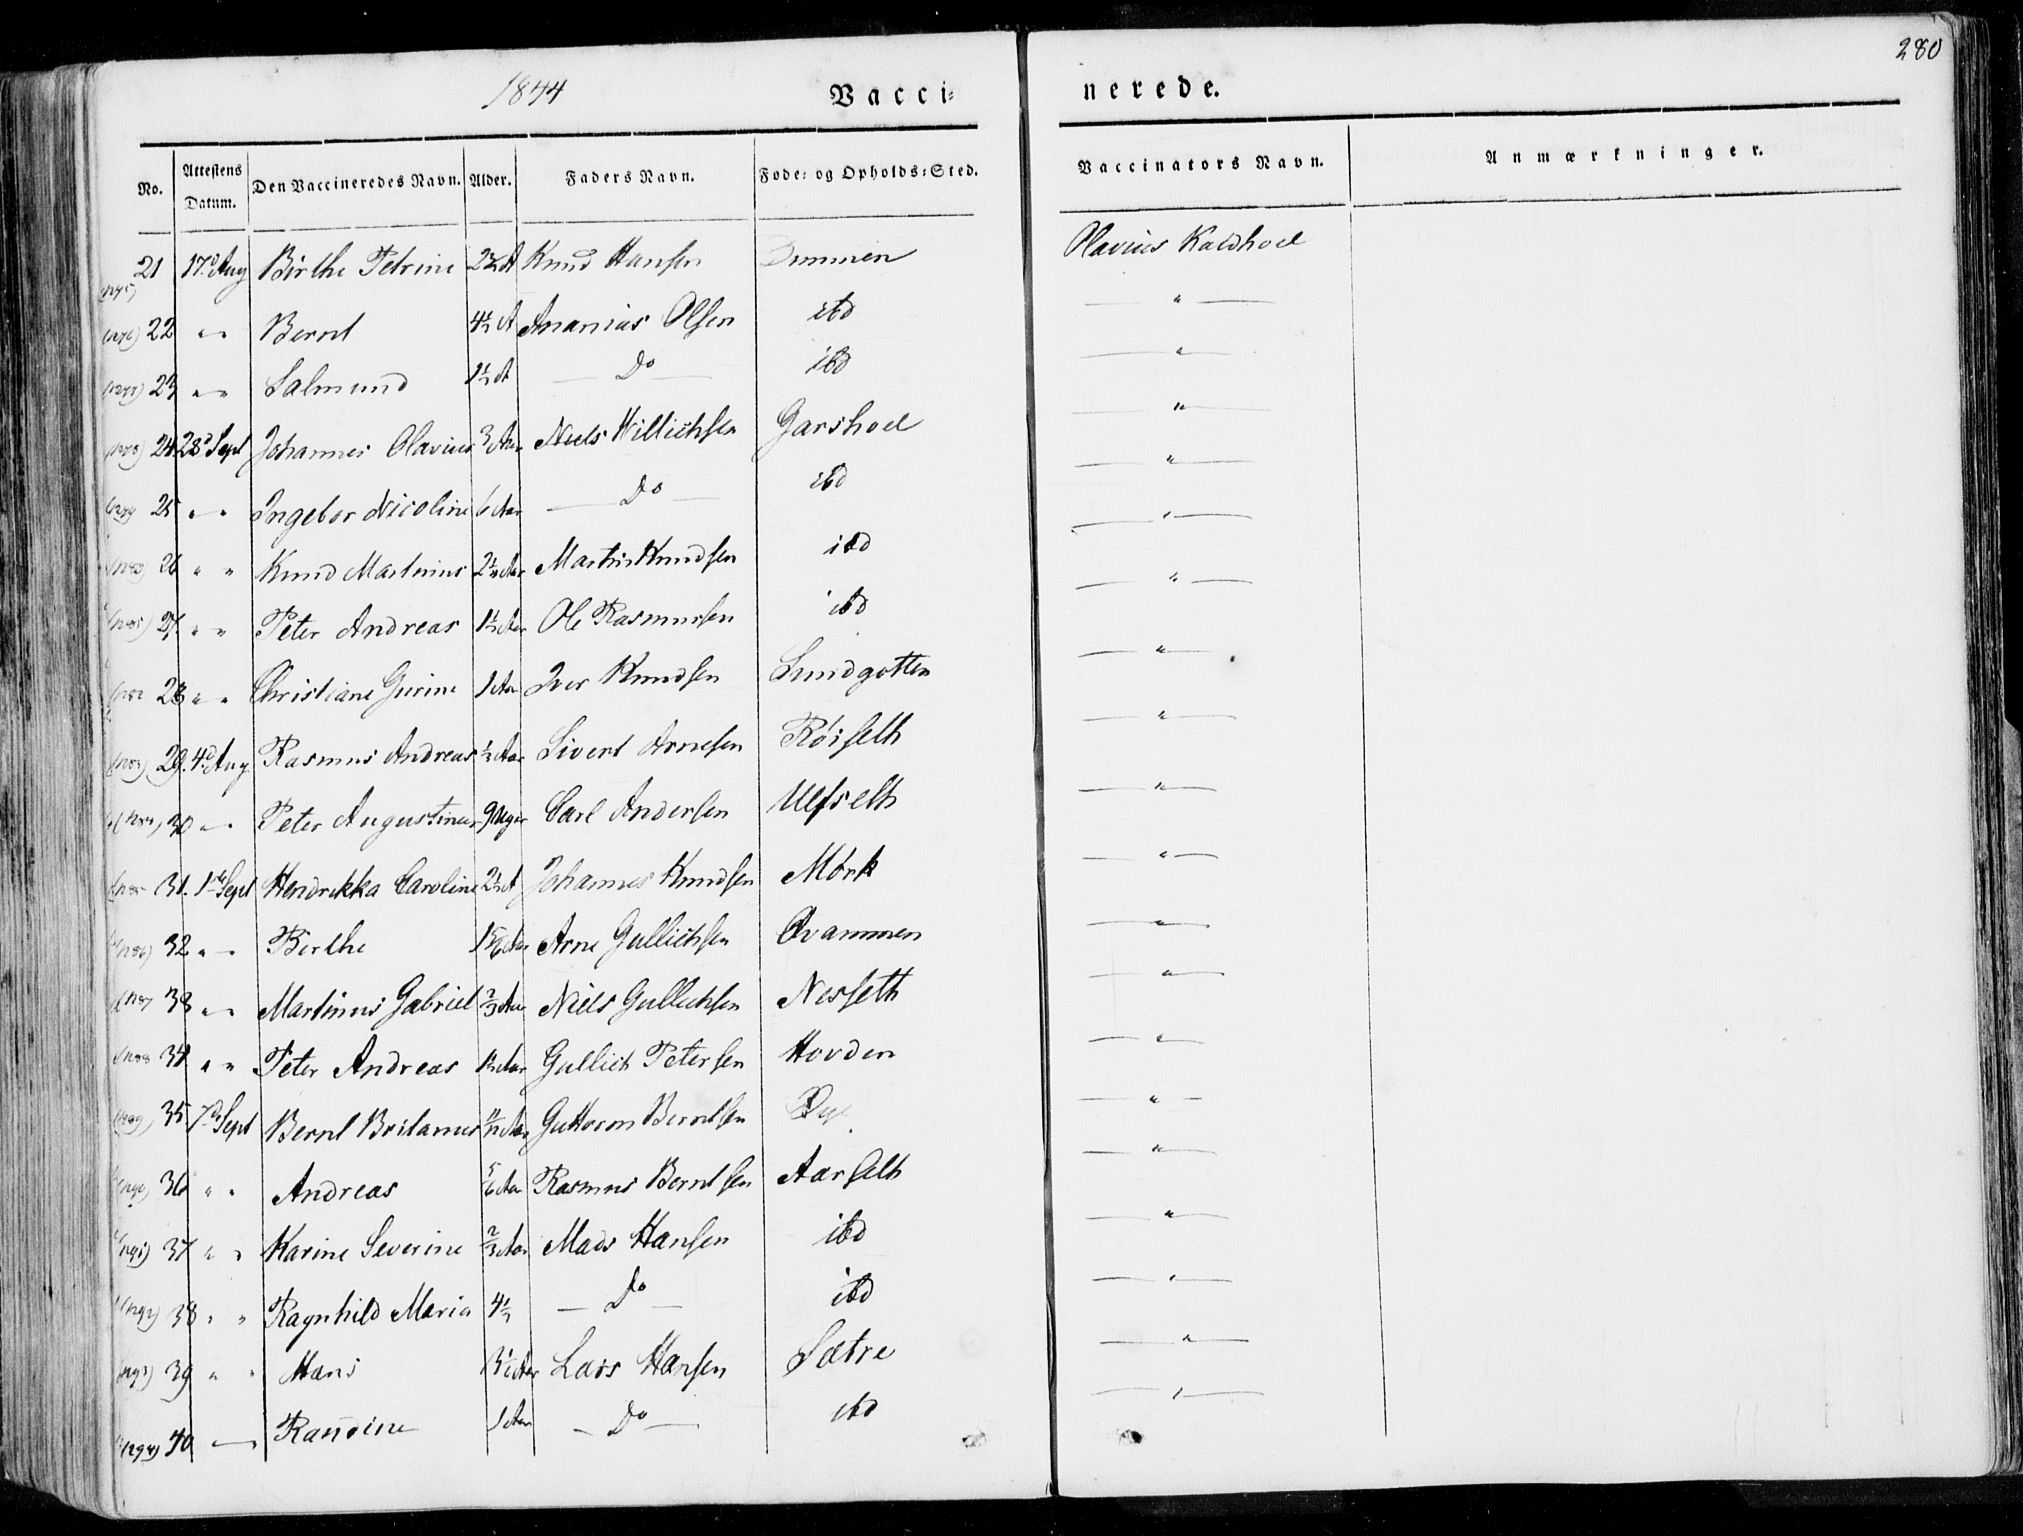 280
1844 Vacci= nerede.
No. Attestens Datum. Den Vaccineredes Navn. Alder. Faders Navn. Føde= og Opholds=Sted. Vaccinators Navn. Anmærkninger.
21 17d Aug Birthe Petrine 2½ A Knud Hansen Olavius Kaldhoel
22 " " Bernt 4½ A Ananias Olsen ibd — " —
23 " " Salmund 1½ A — Do — ibd — " —
24 28d Sept Johannes Olavius 3 Aar Niels Willichsen Garshoel — " —
25 " " Ingebor Nicoline 6 Aar — Do — ibd — " —
26 " " Knud Martinius Martin Knudsen ibd — " —
27. " " Peter Andreas 1½ Aar Ole Rasmussen ibd — " —
28 " " Christiane Gurine 1 Aar Iver Knudsen Lundgotten — " —
29. 4d Aug Rasmus Andreas ½ Aar Sivert Arnesen Röiseth — " —
30 " Peter Augustinus 9 Uger Carl Andersen Ulfseth — " —
31. 1ste Sept Hendrikka Caroline 2½ A Johannes Knudsen Mörk — " —
32 " " Birthe Arne Gullichsen Qvammen — " —
33 " " Martinus Gabriel 2/3 Aar Niels Gullichsen Nesseth — " —
34 " " Peter Andreas 1½ Aar Gullich Petersen Hovden — " —
35 7d Sept Bernt Britanus Guttorm Berntsen — " —
36 " " Andreas 5/6 Aar Rasmus Berntsen Aarseth — " —
37 " " Karine Severine 2/3 Aar Mads Hansen ibd — " —
38 " " Ragnhild Maria 4½ — Do — ibd — " —
39 " " Hans 3½ Aar Lars Hansen Sætre — " —
40 " Randine 1 Aar — Do — ibd — " —